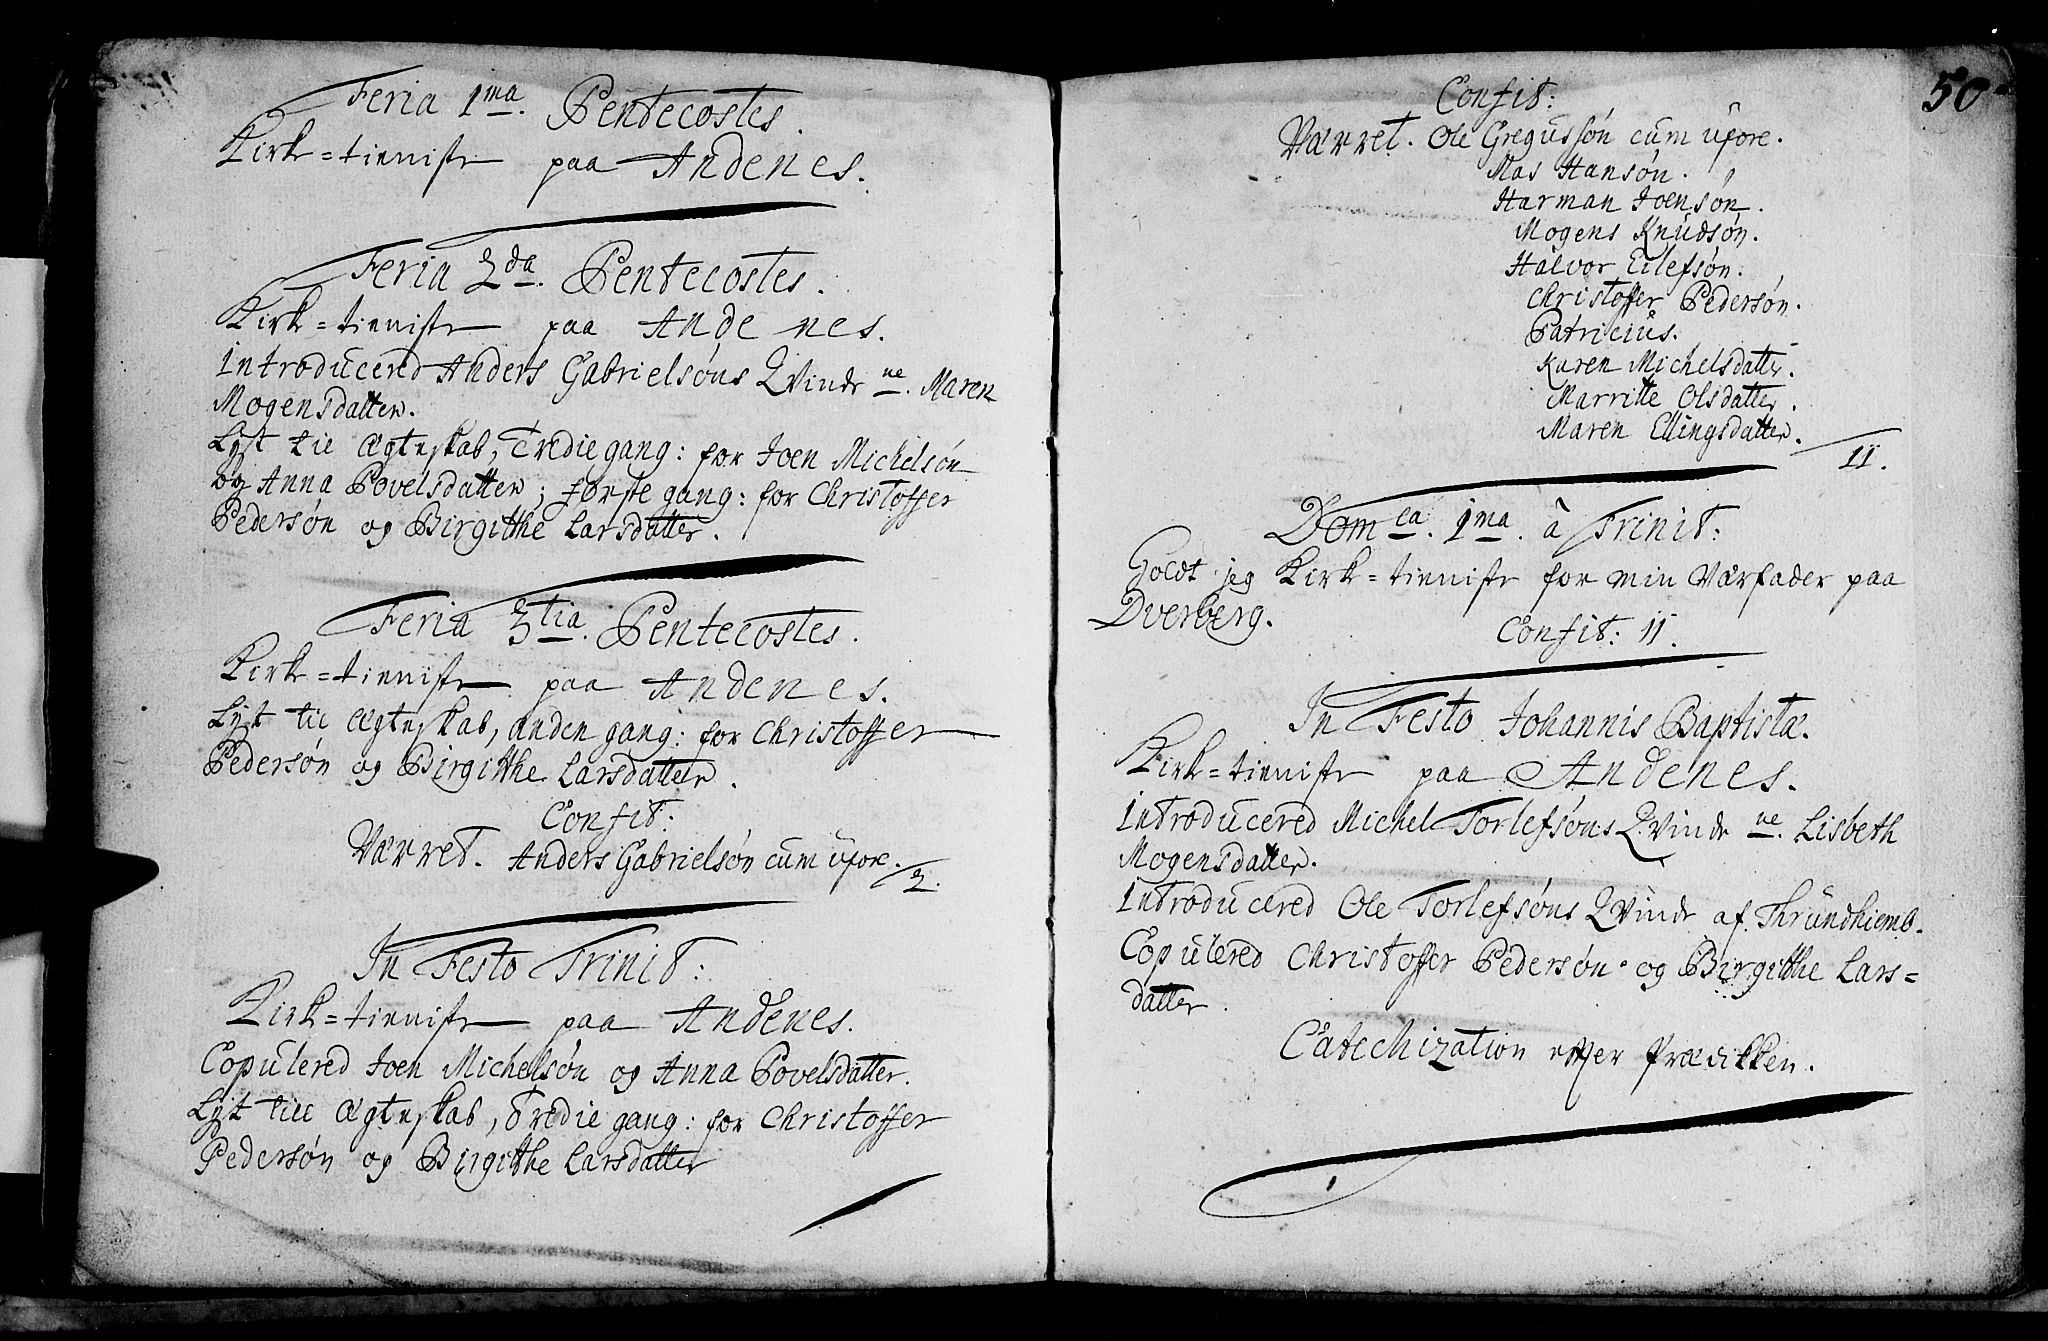 Feria 1ma. Pentecostes.
Kirke=tieniste paa Andenes.
Feria 2da. Pentecostes.
Kirke=tieniste paa Andenes.
Introducered Anders Gabrielsøns Qvinde ne. Maren
Mogensdatter.
Lyst til Ægteskab, Tredie gang: for Joen Michelsøn
og Anna Povelsdatter; første gang: for Christoffer
Pedersøn og Birgitthe Larsdatter.
Feria 3tia. Pentecostes.
Kirke=tieniste paa Andenes.
Lyst til Ægteskab, anden gang: for Christoffer
Pedersøn og Birgitthe Larsdatter.
Confit:
Værret. Anders Gabrielsøn cum uxore.
2.
In Festo Trinit:
Kirke=tieniste paa Andenes.
Copulered Joen Michelsøn og Anna Povelsdatter.
Lyst till Ægteskab, Tredie gang: for Christoffer
Pedersøn og Birgitthe Larsdatter
50
Confit:
Værret. Ole Gregussøn cum uxore.
Mas Hansøn.
Harman Joensøn.
Mogens Knudsøn.
Halvor Eilefsøn.
Christoffer Pedersøn.
Patricius.
Karen Michelsdatter.
Marritte Olsdatter.
Maren Ellingsdatter.
11.
Domca. 1ma. à Trinit:
Holdt jeg Kirke=tieniste for min Værfader paa
Dverberg.
Confit: 11.
In Festo Johannis Baptistæ.
Kirke=tieniste paa Andenes.
Introducered Michel Torlefsøns Qvinde ne. Lisbeth
Mogensdatter.
Introducered Ole Torlefsøns Qvinde af Thrundhiemb.
Copulered Christoffer Pedersøn og Birgitthe Lars=
datter.
Catechization effter Prædikken.